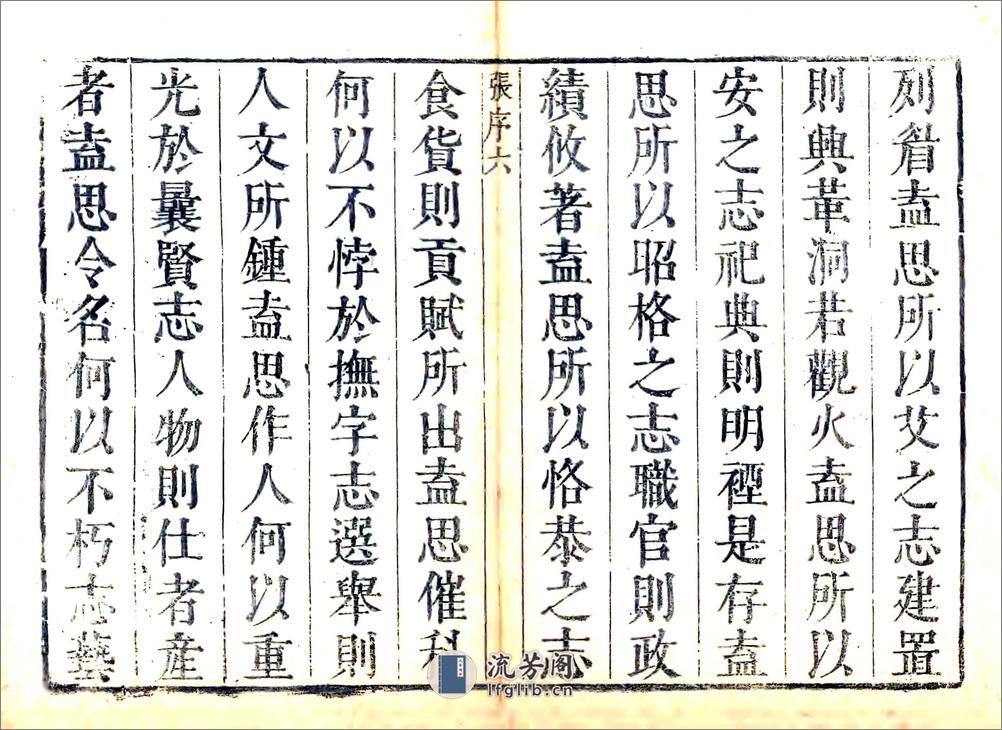 列眉盍思所以艾之志建置
則興革洞若觀火盍思所以
安之志祀典則明禋是存盍
思所以昭格之志職官則政
績攸著盍思所以恪恭之志
張序六
食貨則貢賦所出盍思催科
何以不悖於撫字志選舉則
人文所鍾盍思作人何以重
光於曩賢志人物則仕者産
者盍思令名何以不朽志藝
流芳阁
lfglib.cn